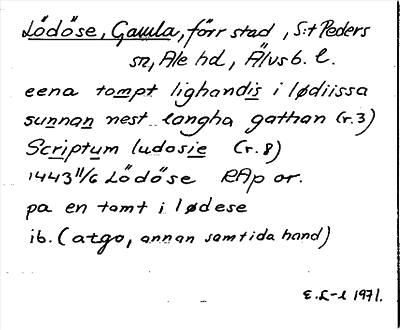 Lödöse, Gamla, förr stad, S:t Peders
sn, Ale hd, Älvsb. l.
eena tompt lighandis i lødiissa
sunnan nest langha gathan (r.3)
Scriptum ludosie (r. 8)
1443 11/6 Lödöse RAp or.
pa en tomt i lødese
ib. (atgo, annan samtida hand)
E. L-l 1971.